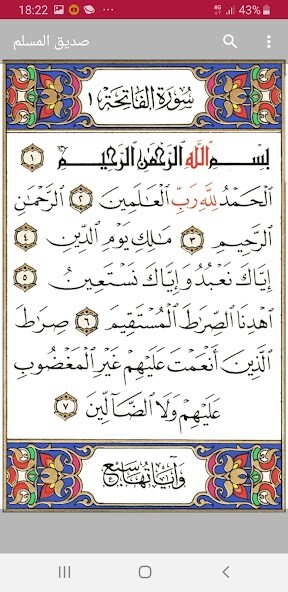 18:22 4G 43%
صديق المسلم
سُورَةُ الفَاتِحَةِ ١
بِسْمِ اللَّهِ الرَّحْمَٰنِ الرَّحِيمِ ١
الْحَمْدُ لِلَّهِ رَبِّ الْعَالَمِينَ ٢ الرَّحْمَٰنِ
الرَّحِيمِ ٣ مَالِكِ يَوْمِ الدِّينِ ٤
إِيَّاكَ نَعْبُدُ وَإِيَّاكَ نَسْتَعِينُ ٥
اهْدِنَا الصِّرَاطَ الْمُسْتَقِيمَ ٦ صِرَاطَ
الَّذِينَ أَنْعَمْتَ عَلَيْهِمْ غَيْرِ الْمَغْضُوبِ
عَلَيْهِمْ وَلَا الضَّالِّينَ ٧
وَآيَاتُهَا سَبْعٌ